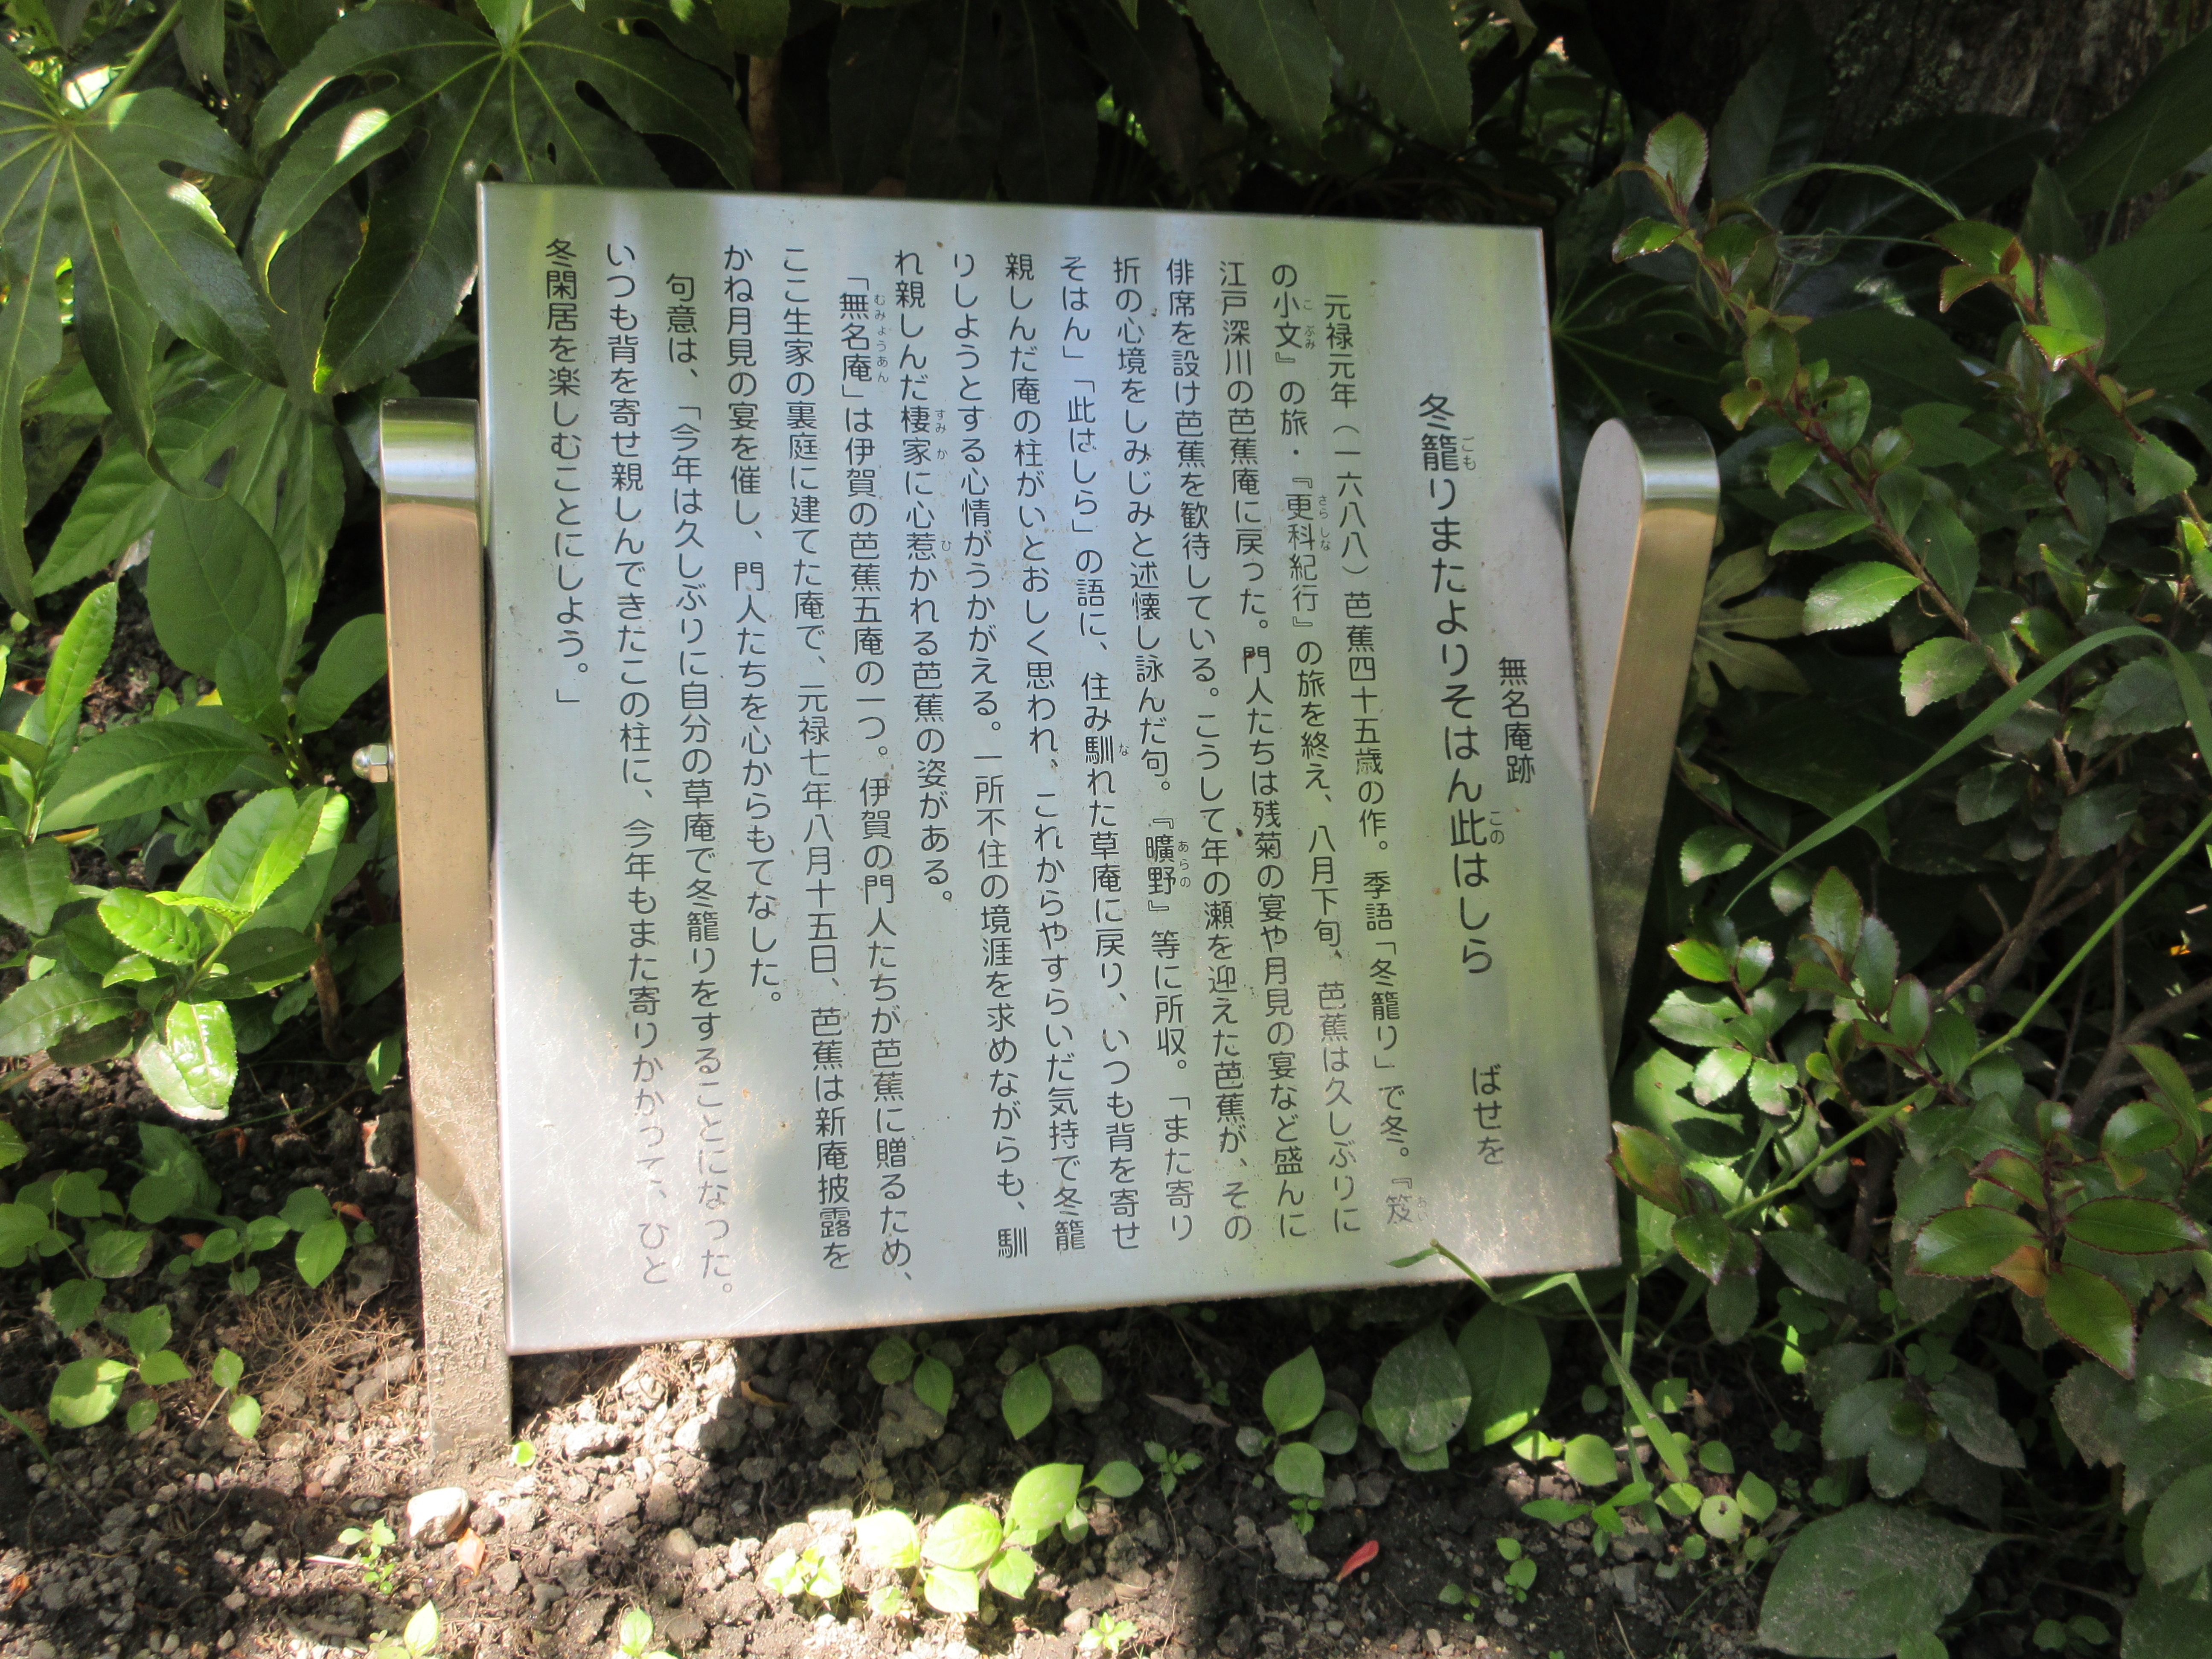 無名庵跡
冬籠りまたよりそはん此はしら　ばせを
元禄元年（一六八八）芭蕉四十五歳の作。季語「冬籠り」で冬。『笈
の小文』の旅・『更科紀行』の旅を終え、八月下旬、芭蕉は久しぶりに
江戸深川の芭蕉庵に戻った。門人たちは残菊の宴や月見の宴など盛んに
俳席を設け芭蕉を歓待している。こうして年の瀬を迎えた芭蕉が、その
折の心境をしみじみと述懐し詠んだ句。『曠野』等に所収。「また寄り
そはん」「此はしら」の語に、住み馴れた草庵に戻り、いつも背を寄せ
親しんだ庵の柱がいとおしく思われ、これからやすらいだ気持で冬籠
りしようとする心情がうかがえる。一所不住の境涯を求めながらも、馴
れ親しんだ棲家に心惹かれる芭蕉の姿がある。
「無名庵」は伊賀の芭蕉五庵の一つ。伊賀の門人たちが芭蕉に贈るため、
ここ生家の裏庭に建てた庵で、元禄七年八月十五日、芭蕉は新庵披露を
かね月見の宴を催し、門人たちを心からもてなした。
句意は、「今年は久しぶりに自分の草庵で冬籠りをすることになった。
いつも背を寄せ親しんできたこの柱に、今年もまた寄りかかって、ひと
冬閑居を楽しむことにしよう。」